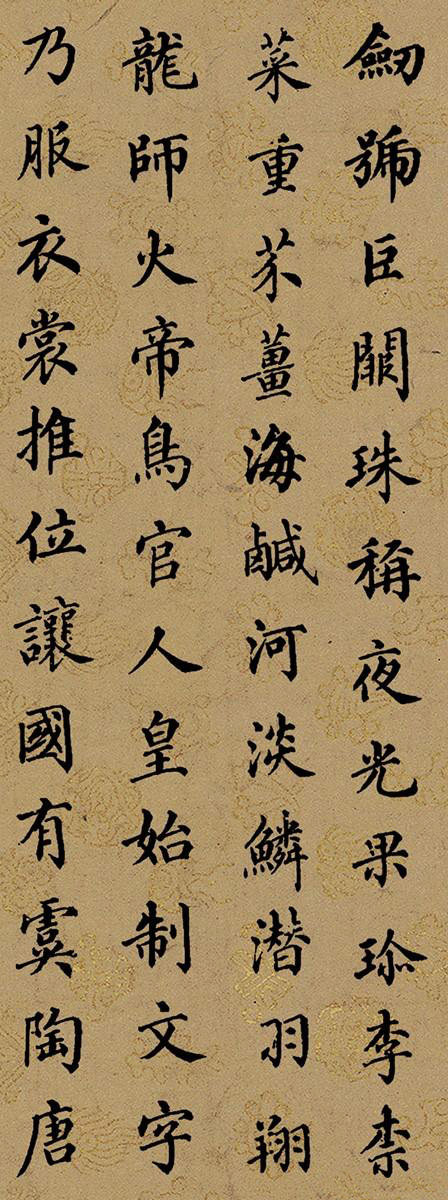 劒號巨闕珠稱夜光果珎李柰
菜重芥薑海鹹河淡鱗潛羽翔
龍師火帝鳥官人皇始制文字
乃服衣裳推位讓國有虞陶唐